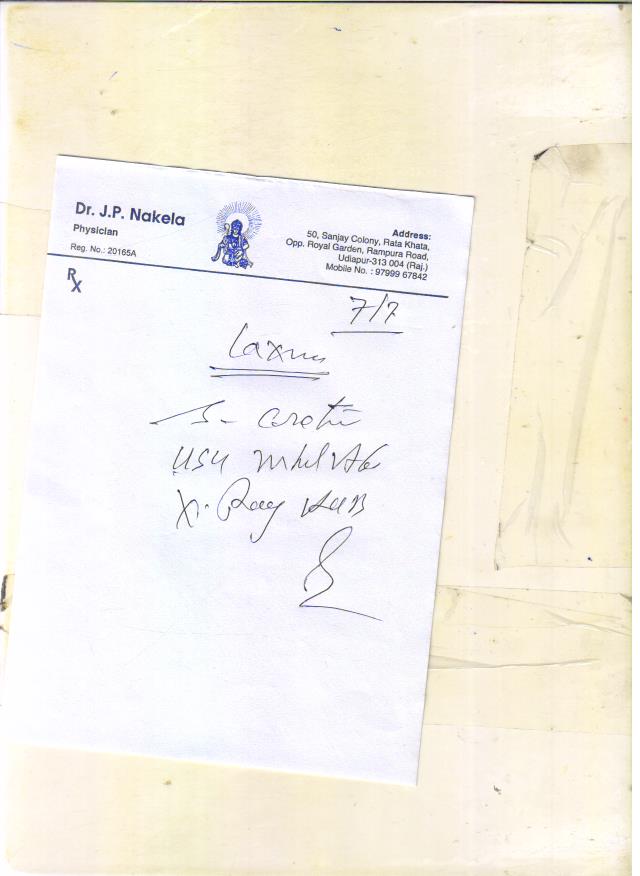 Dr. J.P. Nakela
Physician
Reg. No.: 20165A
Address:
50, Sanjay Colony, Rata Khata,
Opp. Royal Garden, Rampura Road,
Udiapur-313 004 (Raj.)
Mobile No. : 97999 67842
Rx
7/7
Laxmi
S-
X-Ray KUB